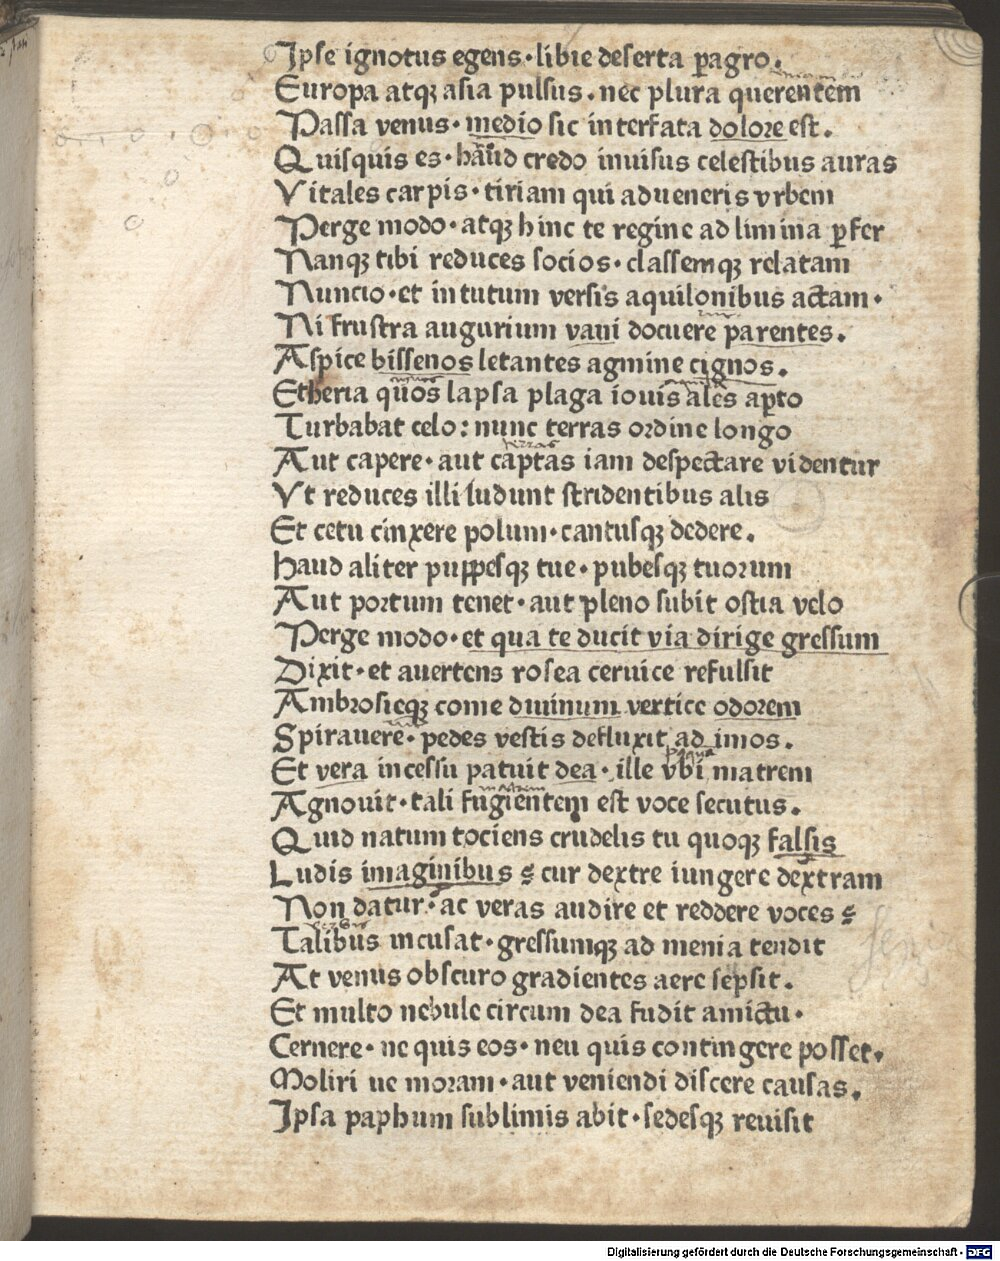 Ipse ignotus egens · libie deserta ꝑagro.
Europa atqꝫ asia pulsus . nec plura querentem
Passa venus · medio sic interfata dolore est.
Quisquis es · haud credo inuisus celestibus auras
Vitales carpis · tiriam qui adueneris vrbem
Perge modo · atqꝫ hinc te regine ad limina ꝑfer
Nanqꝫ tibi reduces socios · classemqꝫ relatam
Nuncio · et in tutum versis aquilonibus actam ·
Ni frustra augurium vani docuere parentes.
Aspice bissenos letantes agmine cignos.
Etheria quos lapsa plaga iouis ales aꝑto
Turbabat celo : nunc terras ordine longo
terras
Aut capere · aut captas iam despectare videntur
Vt reduces illi ludunt stridentibus alis
Et cetu cinxere polum · cantusqꝫ dedere.
Haud aliter puppesqꝫ tue · pubesqꝫ tuorum
Aut portum tenet · aut pleno subit ostia velo
Perge modo · et qua te ducit via dirige gressum
Dixit · et auertens rosea ceruice refulsit
Ambrosieqꝫ come diuinum vertice odorem
Spirauere · pedes vestis defluxit ad imos.
Et vera incessu patuit dea · ille vbi matrem
matrem
Agnouit · tali fugientem est voce secutus.
Quid natum tociens crudelis tu quoqꝫ falsis
Ludis imaginibus ? cur dextre iungere dextram
Non datur · ac veras audire et reddere voces ?
Talibus incusat · gressumqꝫ ad menia tendit
At venus obscuro gradientes aere sepsit.
Et multo nebule circum dea fudit amictu ·
Cernere · ne quis eos · neu quis contingere posset.
Moliri ue moram · aut veniendi discere causas.
Ipsa paphum sublimis abit · sedesqꝫ reuisit
Digitalisierung gefördert durch die Deutsche Forschungsgemeinschaft - DFG